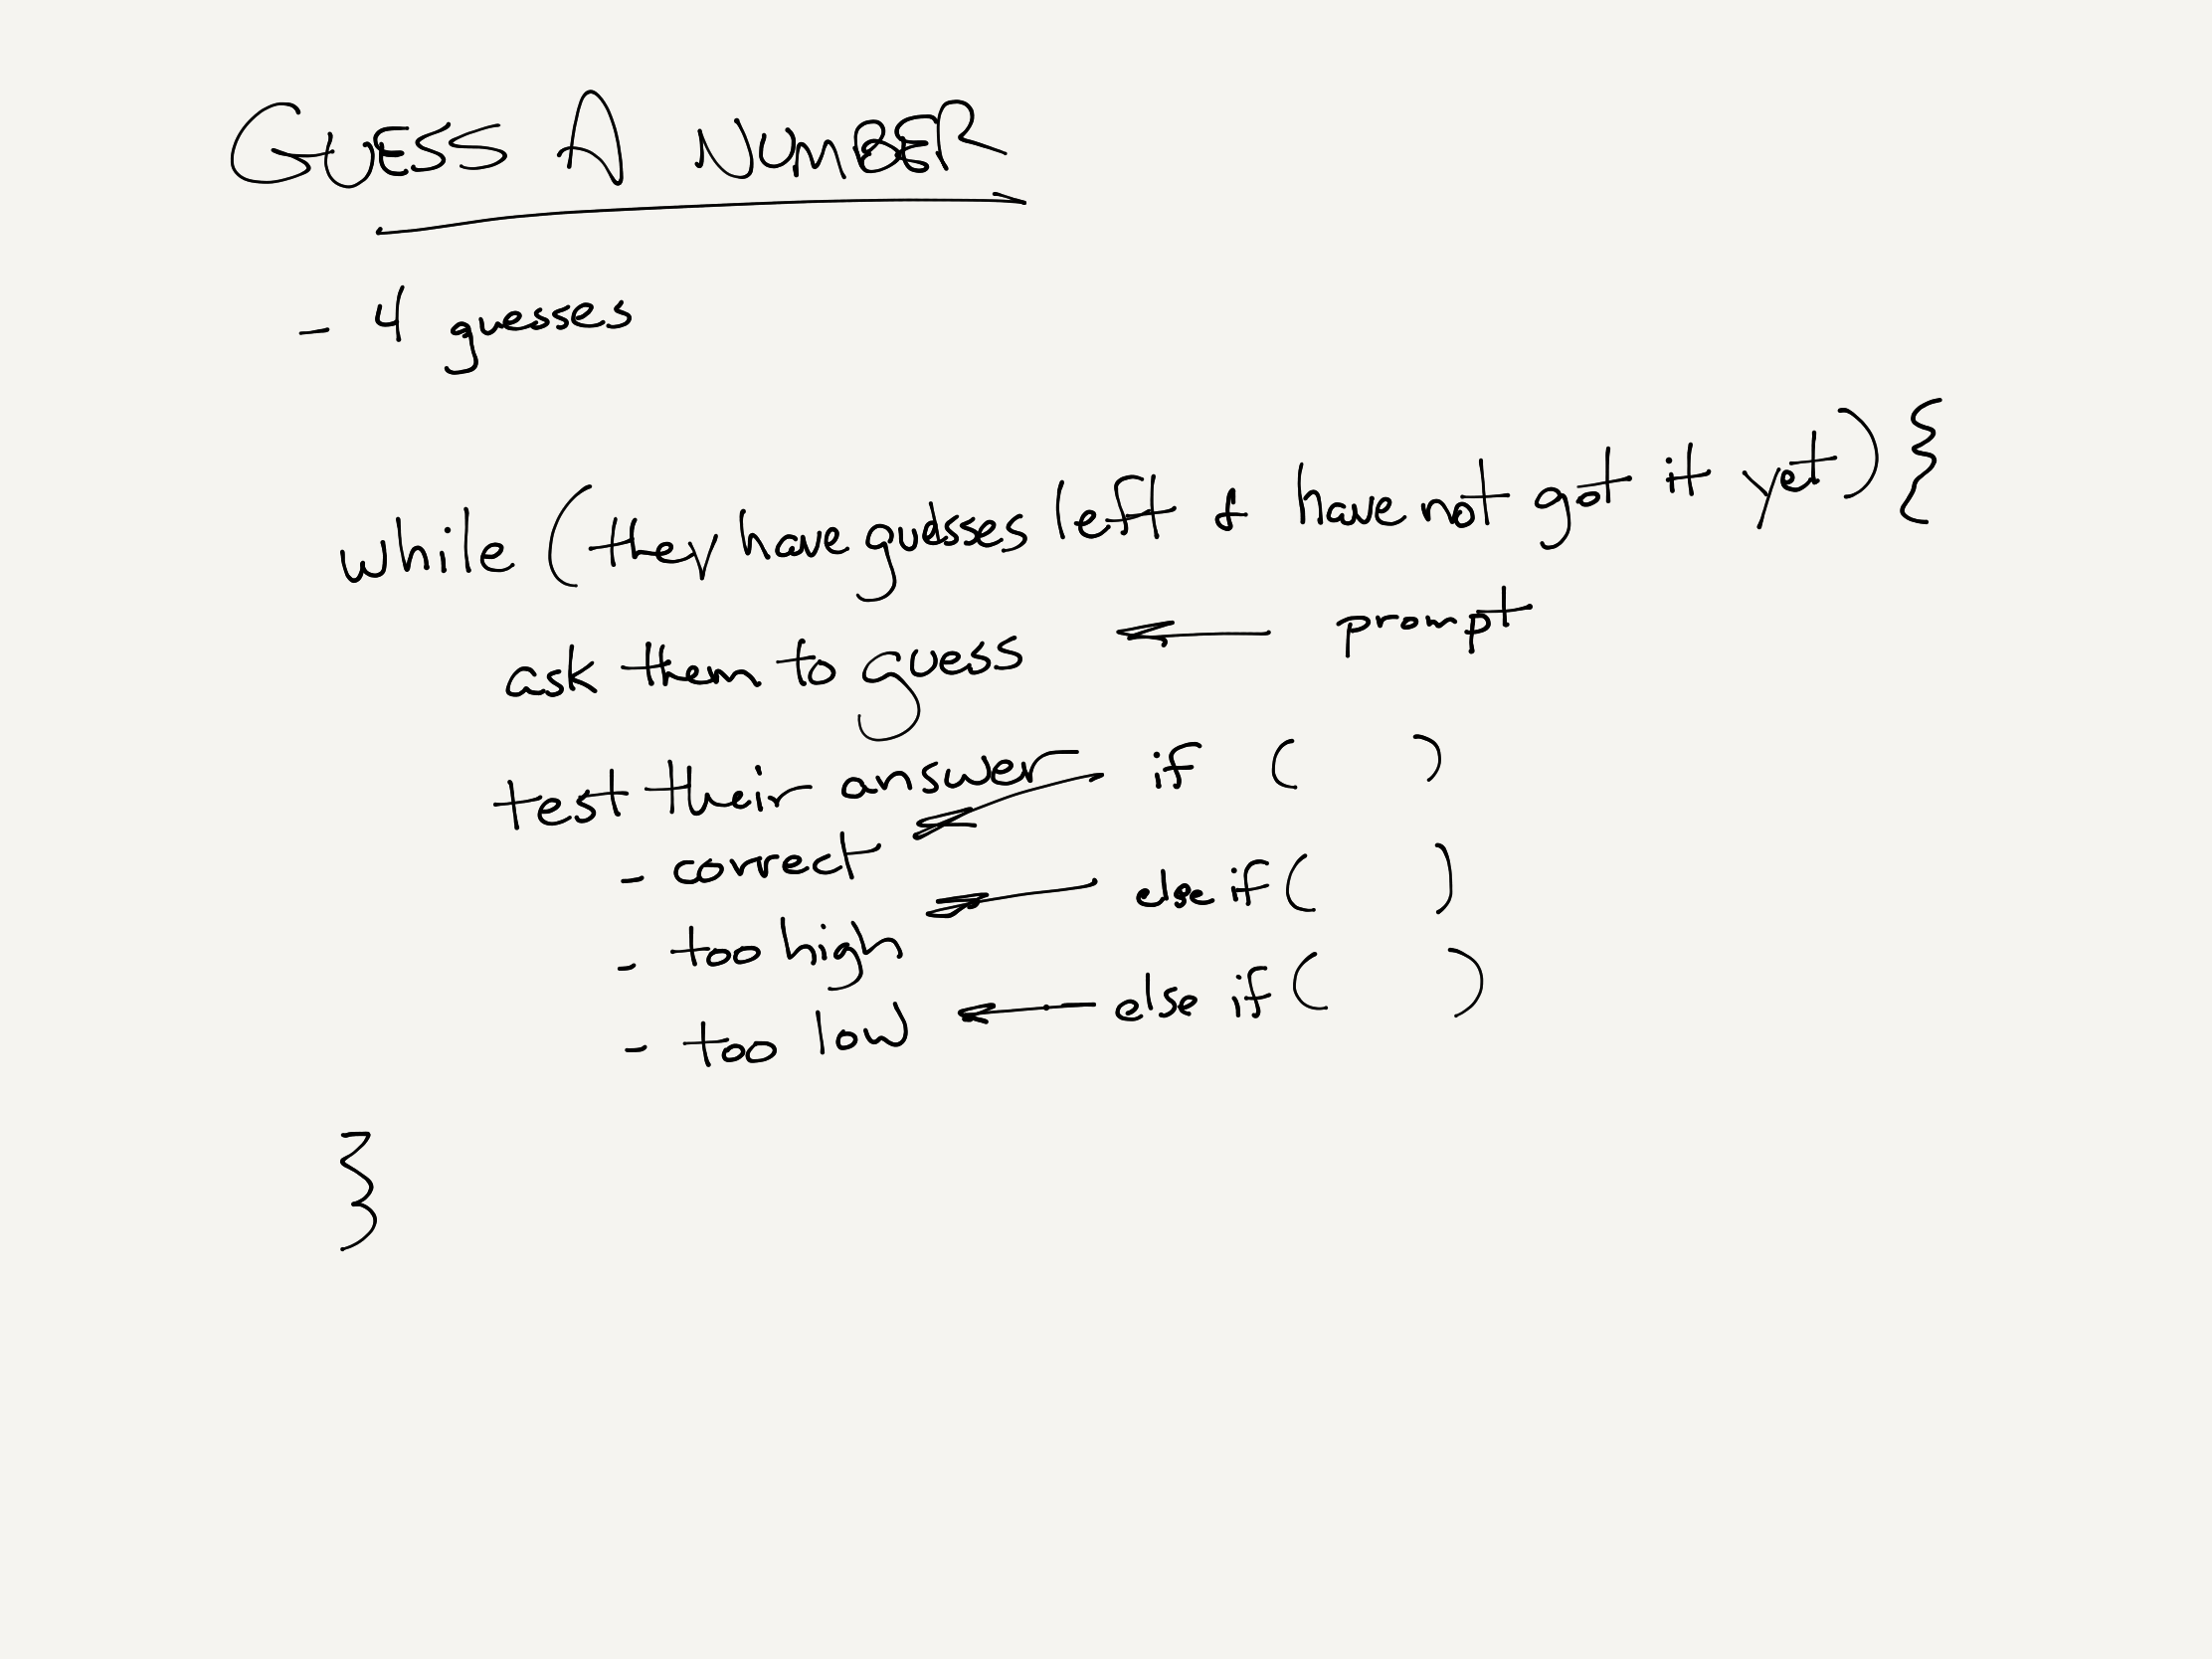 GUESS A NUMBER
- 4 guesses
while (they have guesses left & have not got it yet) {
ask them to guess ← prompt
test their answer if ( )
- correct ←
- too high ← else if ( )
- too low ← else if ( )
}